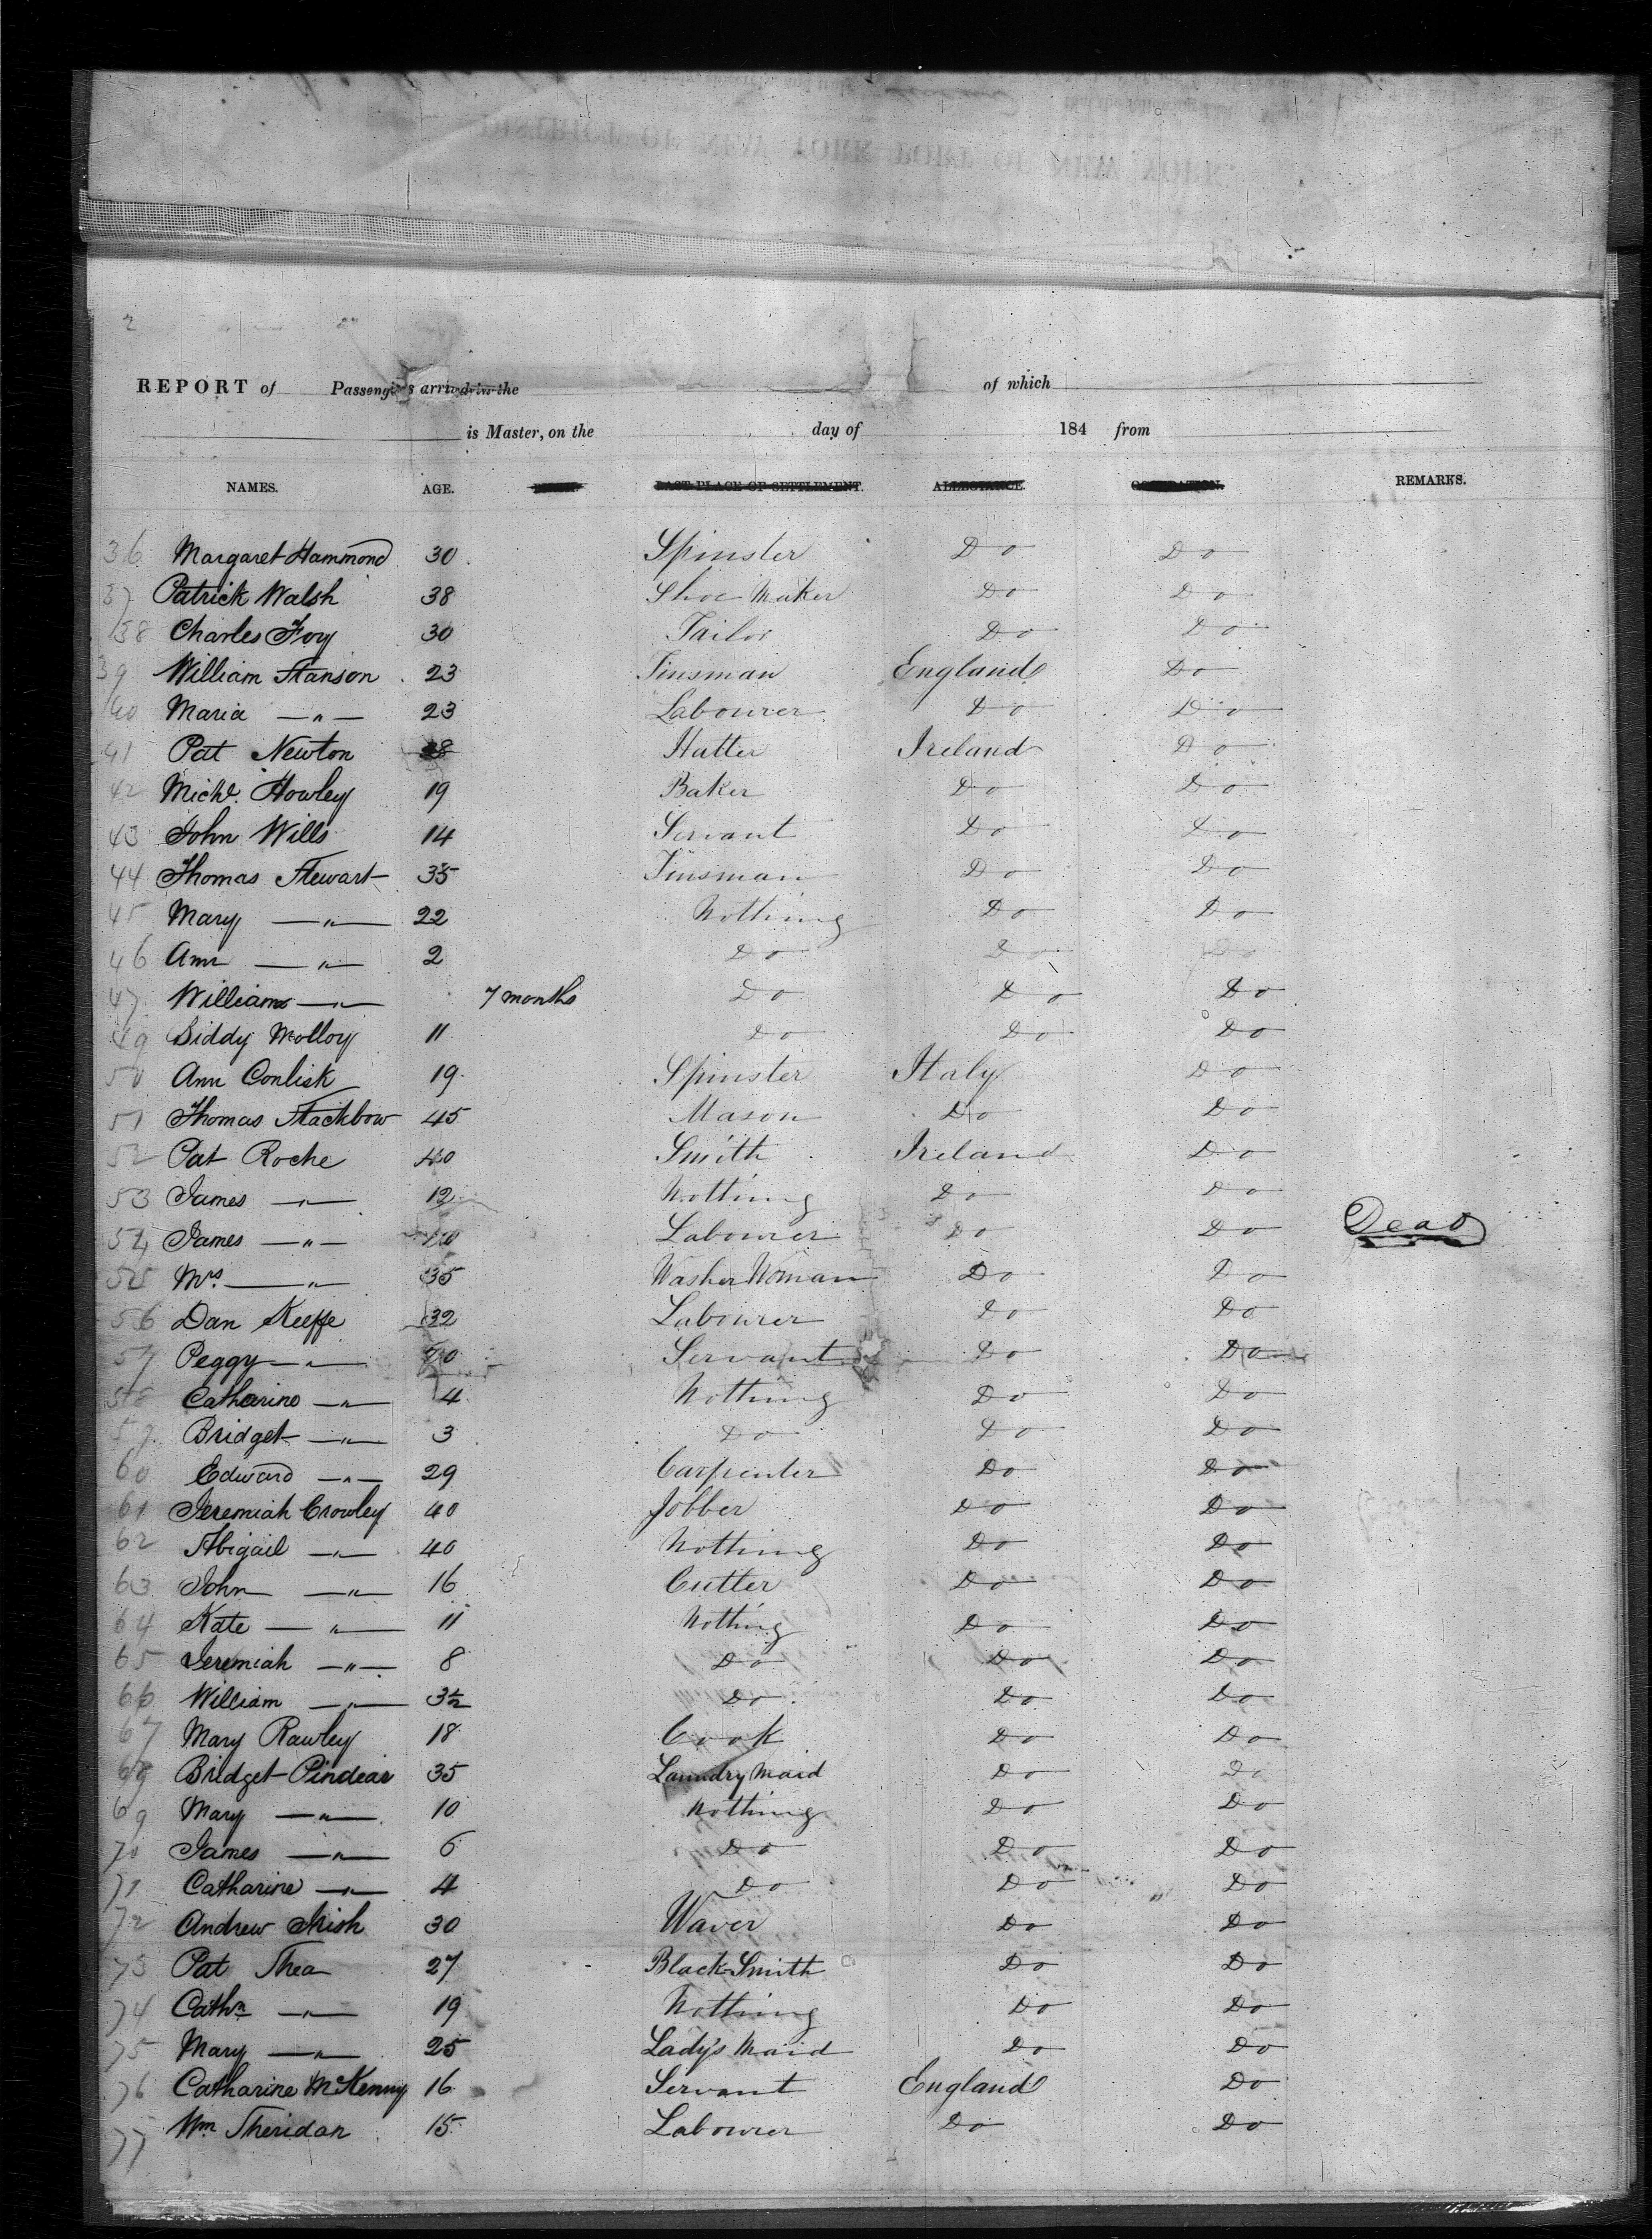 2
REPORT of Passengers arrived in the of which
is Master, on the day of 184 from
NAMES. AGE. LAST PLACE OF SETTLEMENT. ALLEGIANCE. OCCUPATION. REMARKS.
36 Margaret Hammond 30 Spinster Do Do
37 Patrick Walsh 38 Shoe Maker Do Do
38 Charles Foy 30 Tailor Do Do
39 William Stanson 23 Tinsman England Do
40 Maria —"— 23 Labourer Do Do
41 Pat Newton 28 Hatter Ireland Do
42 Michl. Howley 19 Baker Do Do
43 John Wills 14 Servant Do Do
44 Thomas Stewart 35 Tinsman Do Do
45 Mary —"— 22 Nothing Do Do
46 Ann —"— 2 Do Do Do
47 William —"— 7 months Do Do Do
49 Biddy Molloy 11 Do Do Do
50 Ann Conlisk 19 Spinster Italy Do
51 Thomas Stackbow 45 Mason Do Do
52 Pat Roche 40 Smith Ireland Do
53 James —"— 12 Nothing Do Do
54 James —"— Labourer Do Do Dead
55 Mrs —"— 35 Washer Woman Do Do
56 Dan Keeffe 32 Labourer Do Do
57 Peggy —"— Servant Do Do
58 Catharine —"— 4 Nothing Do Do
59 Bridget —"— 3 Do Do Do
60 Edward —"— 29 Carpenter Do Do
61 Jeremiah Crowley 40 Jobber Do Do
62 Abigail —"— 40 Nothing Do Do
63 John —"— 16 Cutler Do Do
64 Kate —"— 11 Nothing Do Do
65 Jeremiah —"— 8 Do Do Do
66 William —"— 3½ Do Do Do
67 Mary Rawley 18 Cook Do Do
68 Bridget Pindear 35 Laundry Maid Do Do
69 Mary —"— 10 Nothing Do Do
70 James —"— 6 Do Do Do
71 Catharine —"— 4 Do Do Do
72 Andrew Irish 30 Waver Do Do
73 Pat Shea 27 Black Smith Do Do
74 Cathn —"— 19 Nothing Do Do
75 Mary —"— 25 Lady's Maid Do Do
76 Catharine McKenny 16 Servant England Do
77 Wm Sheridan 15 Labourer Do Do